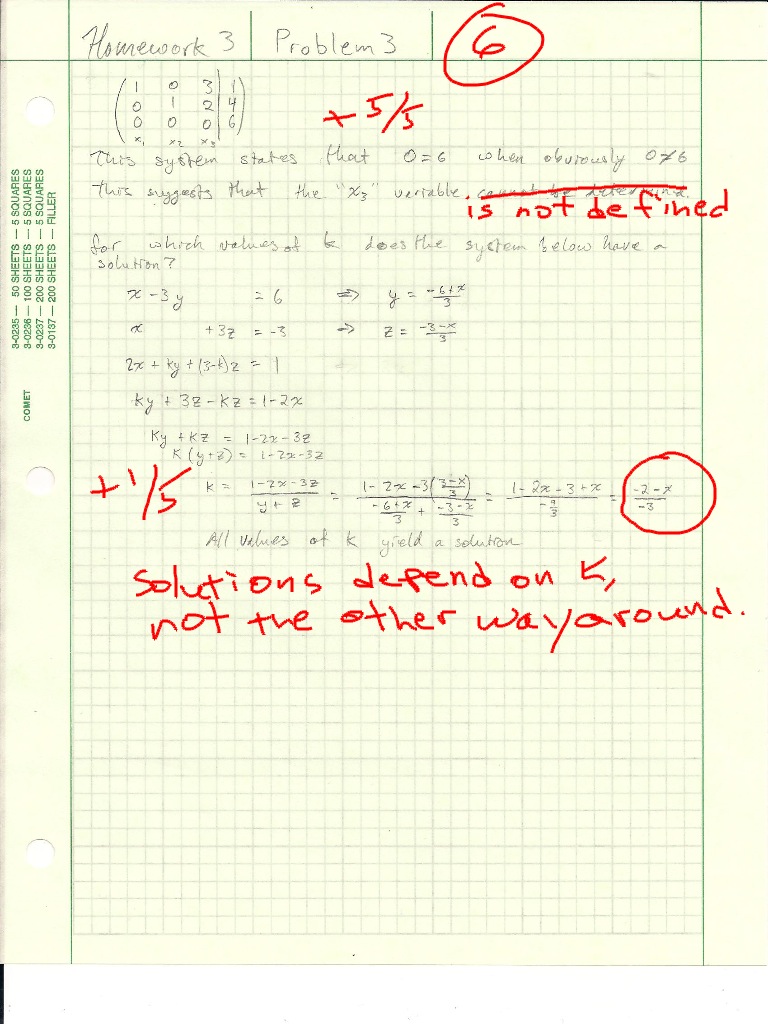 Homework 3 Problem 3 6
1 0 3 | 1
0 1 2 | 4
0 0 0 | 6
x₁ x₂ x₃
+5/5
This system states that 0=6 when obviously 0≠6
This suggests that the "x₃" variable cannot be determined
is not defined
for which values of k does the system below have a
solution?
x - 3y = 6 ⇒ y = -6+x/3
x + 3z = -3 ⇒ z = -3-x/3
2x + ky + (3-k)z = 1
ky + 3z - kz = 1-2x
Ky + KZ = 1-2x-3z
K(y+z) = 1-2x-3z
+1/5
K = 1-2x-3z/y+z = 1-2x-3(3-x/3)/-6+x/3 + -3-x/3 = 1-2x-3+x/-9/3 = -2-x/-3
All values of k yield a solution
Solutions depend on K,
not the other way around.
3-0235 — 50 SHEETS — 5 SQUARES
3-0236 — 100 SHEETS — 5 SQUARES
3-0237 — 200 SHEETS — 5 SQUARES
3-0137 — 200 SHEETS — FILLER
COMET